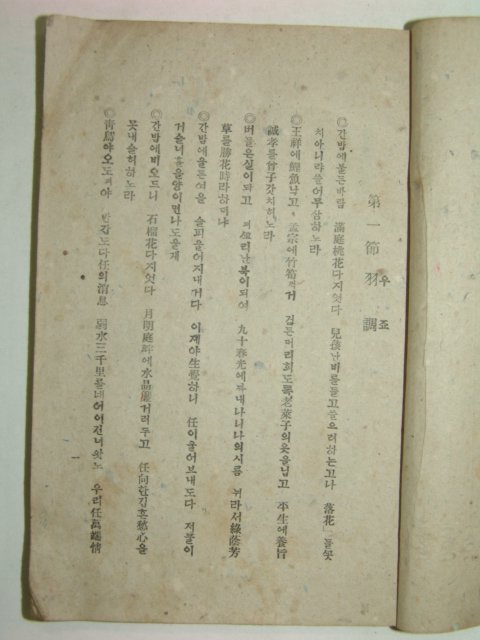 第一節 羽調
우죠
◎간밤에불든바람 滿庭桃花다지엿다 兒孩난비를들고쓸으려하는고나 落花 들못
치아니랴쓸어무삼하노라
◎王祥에鯉魚낙고 孟宗에竹筍꺽거 검든머리희도록老萊子의옷을닙고 平生에養旨
誠孝를曾子갓치히노라
◎버들은실이되고 꾀꼬리난북이되여 九十春光에짜내나니나의시름 뉘라셔綠陰芳
草를勝花時라하더냐
◎간밤에울든여흘 슬피울어지내거다 이제야生覺하니 任이울어보내도다 져물이
거슬너흘을양이면나도울제
◎간밤에비오드니 石榴花다지엿다 月明庭畔에水晶簾거러두고 任向한깁흔愁心을
못내슬허하노라
◎靑鳥야오도괴야 반갑도다任의消息 弱水三千里를네어이건너왓노 우리任萬端情
一